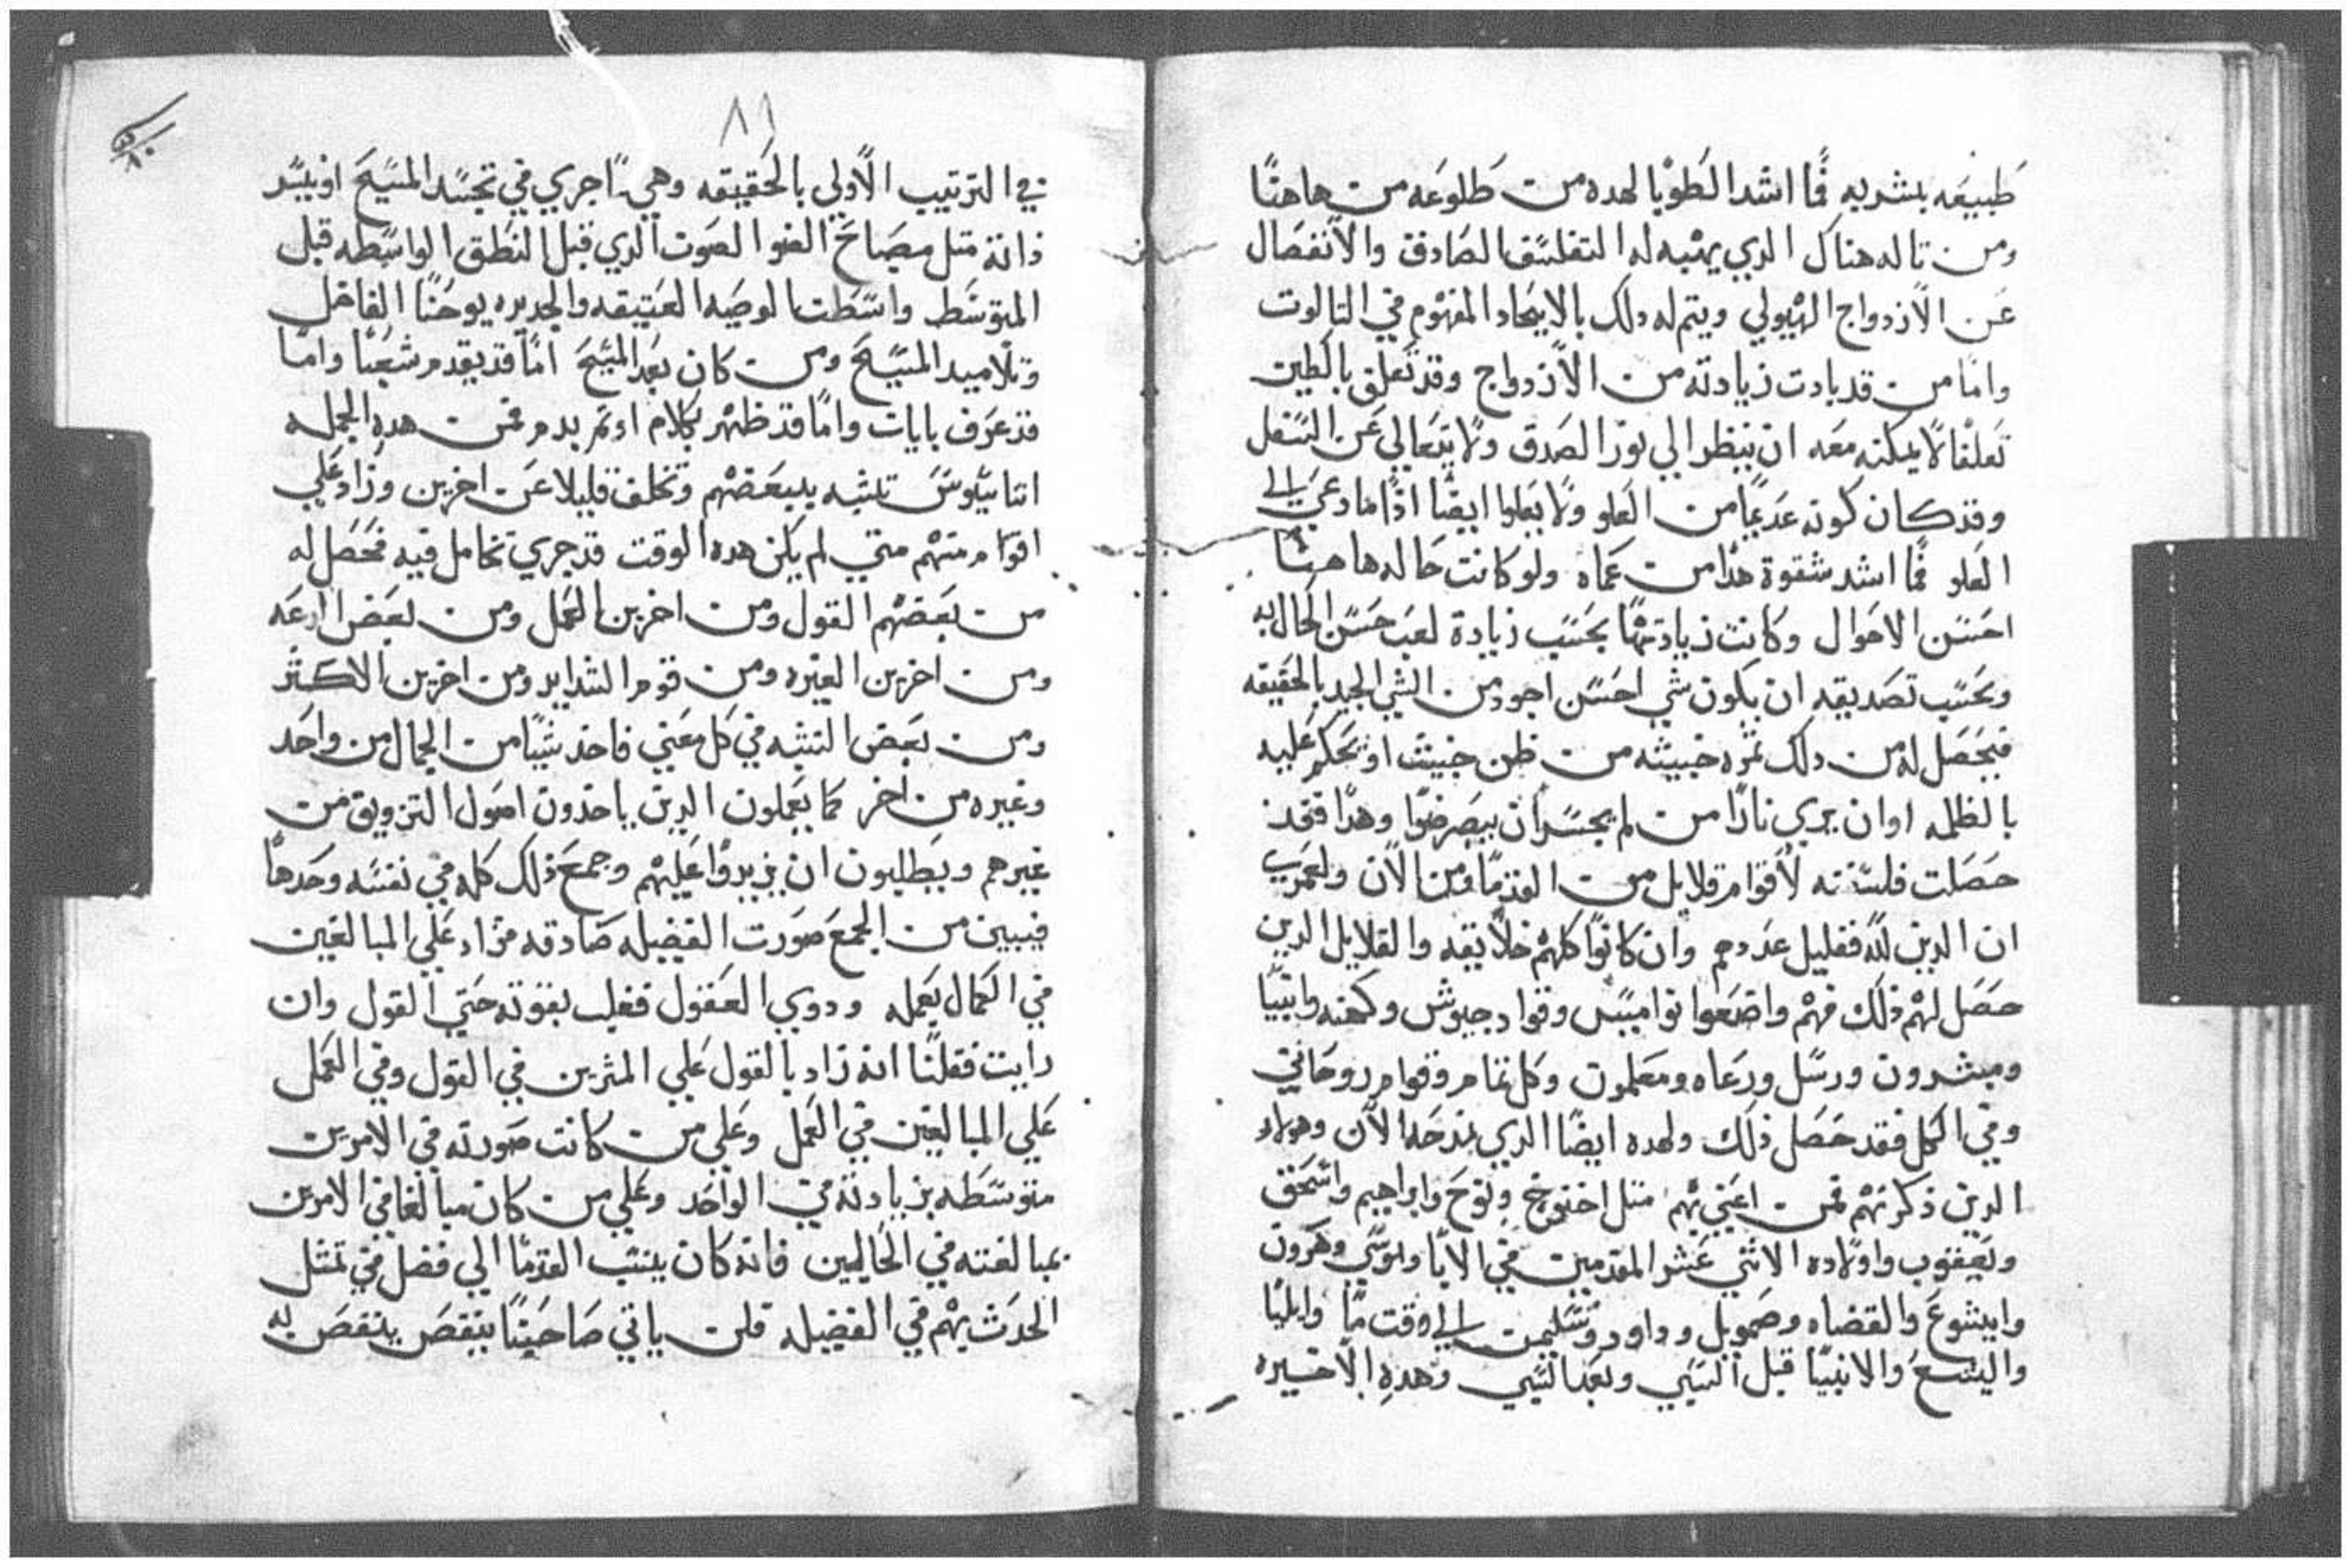 طبيعه بشريه فما اشد الطوبا لهده من طلوعه من هاهنا
ومن تاله هناك الدي يهبه له التفلسف الصادق والانفصال
عن الازدواج الهيولي ويتم له دلك بالايحاد المفهوم في التالوت
واما من قد بادت زيادته من الازدواج وقد تعلق بالطين
تعلقا لا يمكنه معه ان ينظر الي نور الصدق ولا يتعالي عن السفل
وقد كان كونه عديما من العلو ولا يعلوا ايضا ادا ما دعي الي
العلو فما اشد شقوة هدا من عماه ولو كانت حاله هاهنا
احسن الاحوال وكانت زيادتها بحسب زيادة لعب حسن الحال به
وبحسب تصديقه ان يكون شي احسن اجود من الشي الجيد بالحقيقه
فيحصل له من دلك ثمره خبيثه من ظن خبيث او يحكم عليه
بالظلمه او ان يري نارا من لم يحسران يبصر ضوا وهدا فقد
حصلت فلسفته لاقوام قلايل من القدما ومن الان ولعمري
ان الدين لله فقليل عددهم وان كانوا كلهم خلايقه والقلايل الدين
حصل لهم ذلك فهم واضعوا نواميس وقواد جيوش وكهنه وانبيا
ومبشرون ورسل ورعاه ومعلمون وكل تمام وقوام روحاني
وفي الكل فقد حصل ذلك ولهده ايضا الدي نمدحه الان وهولاء
الدين ذكرتهم فمن اعني بهم متل اخنوخ ونوح وابراهيم واسحق
ويعقوب واولاده الاثني عشر المقدمين في الابا وموسي وهرون
وايشوع والقضاه وصمويل وداود وسليمن الي وقت ما وايليا
واليسع والانبيا قبل السبي وبعد السبي وهده الاخيره
٨١
في الترتيب الاولي بالحقيقه وهي ما جري في تجسد المسيح او يسد
ذاته متل مصباح الضو الصوت الدي قبل النطق الواسطه قبل
المتوسط واسطت الوصيه العتيقه والجديده يوحنا الفاضل
وتلاميد المسيح ومن كان بعد المسيح اما قد يقدم شعبا واما
قد عرف بايات واما قد ظهر بكلام او تم بدم فمن هده الجمله
اتناسيوس تشبه ببعضهم وتخلف قليلا عن اخرين وزاد علي
اقوام منهم متي لم يكن هده الوقت قد جري تحامل فيه فحصل له
من بعضهم القول ومن اخرين العمل ومن بعض الدعه
ومن اخرين الغيره ومن قوم الشدايد ومن اخرين الاكثر
ومن بعض التشبه في كل معني فاخد شيا من الجمال من واحد
وغيره من اخر كما يعملون الدين ياخدون اصول التزويق من
غيرهم ويطلبون ان يزيدوا عليهم وجمع ذلك كله في نفسه وحدها
فيبين من الجمع صورت الفضيله صادقه فزاد علي المبالغين
في الكمال بعمله ودوي العقول فغلب بقوته حتي القول وان
رايت فقلنا انه زاد بالقول علي المثرين في القول وفي العمل
علي المبالغين في العمل وعلي من كانت صورته في الامرين
متوسطه بزيادته في الواحد وعلي من كان مبالغا في الامرين
بمبالغته في الحالين فانه كان ينسب القدما الي فضل في تمثل
الحدث بهم في الفضيله فلن ياتي صاحبنا بنقص ينتقص به